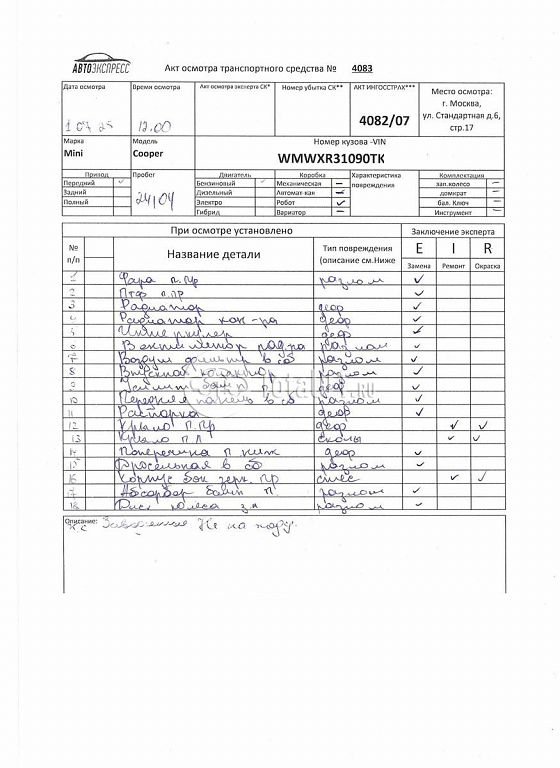 АВТОЭКСПРЕСС
Акт осмотра транспортного средства № 4083
Дата осмотра Время осмотра Акт осмотра эксперта СК* Номер убытка СК** АКТ ИНГОССТРАХ*** Место осмотра:
12.00 4082/07 г. Москва,
ул. Стандартная д.6,
стр.17
Марка Модель Номер кузова -VIN
Mini Cooper WMWXR31090TK
Привод Пробег Двигатель Коробка Характеристика Комплектация
Передний ✓ Бензиновый ✓ Механическая – повреждения зап.колесо –
Задний Дизельный Автомат-кая ✓ домкрат –
Полный Электро Робот ✓ бал. Ключ –
Гибрид Вариатор – Инструмент –
При осмотре установлено Заключение эксперта
№ п/п Название детали Тип повреждения (описание см.Ниже E I R
Замена Ремонт Окраска
1 Фара п.пр разлом ✓
2 Птф п.пр ✓
3 Радиатор деф ✓
4 Радиатор кон-ра деф ✓
5 Интеркулер деф ✓
6 Вентилятор рад-ра разлом ✓
7 Воздуш фильтр в сб разлом ✓
8 Впускной коллектор разлом ✓
9 бамп п деф ✓
10 Передняя панель в сб разлом ✓
11 деф ✓
12 Крыло п.пр деф ✓ ✓
13 Крыло п л сколы ✓ ✓
14 Поперечина п ниж деф ✓
15 Дросельная в сб разлом ✓
16 Корпус бок зерк. пр ✓ ✓
17 Абсорбер бамп п разлом ✓
18 Диск колеса разлом ✓
Описание:
Не на ходу.